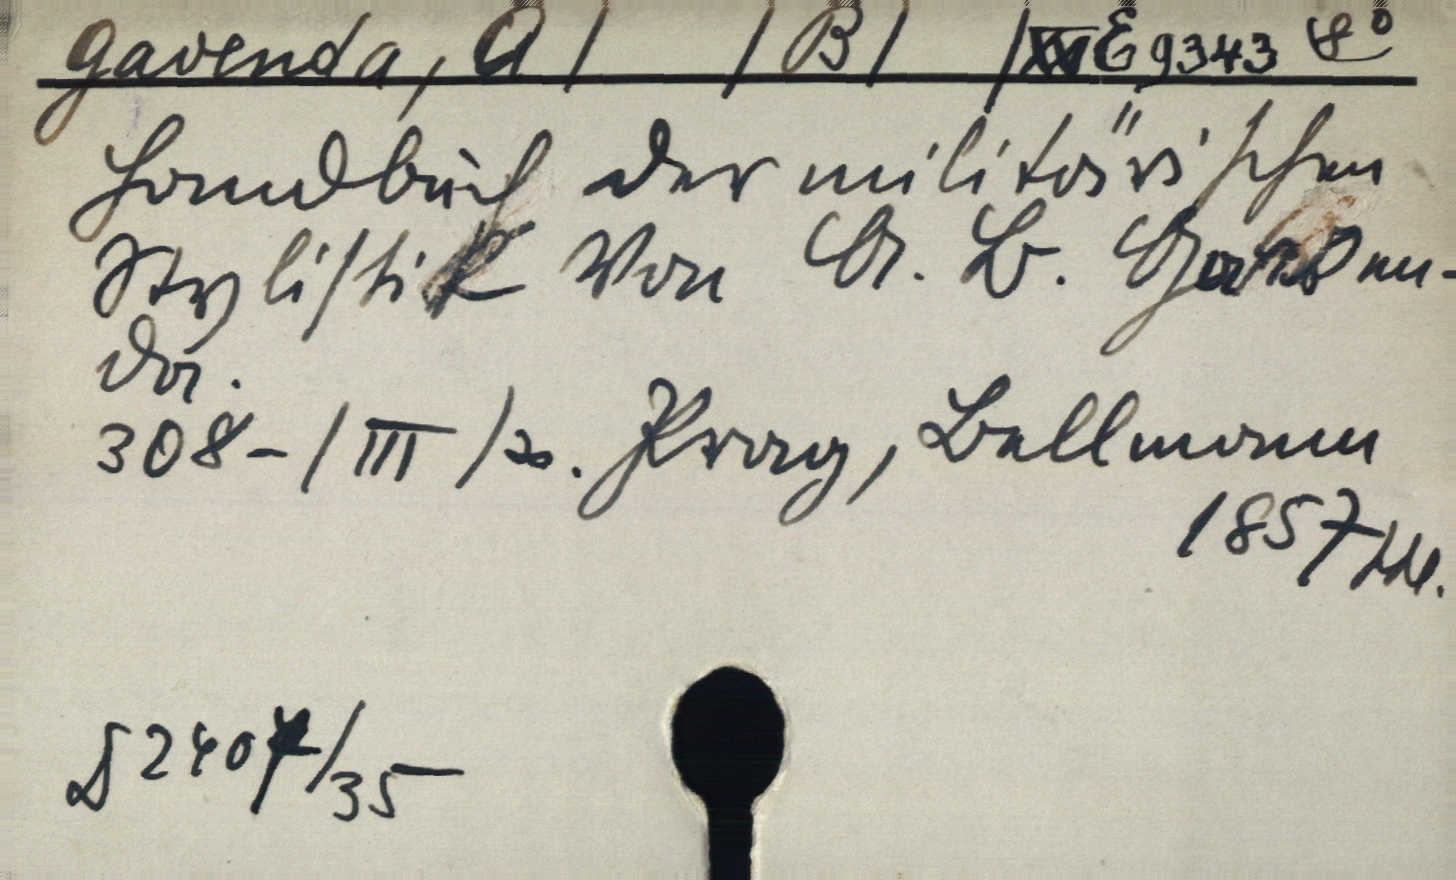 Gavenda, A / / B / / XVI E 9343 8°
Handbuch der militärischen
Stylistik Von A. B. Gaven-
da.
308-/III/s. Prag, Bellmann
1857
D 2407/35